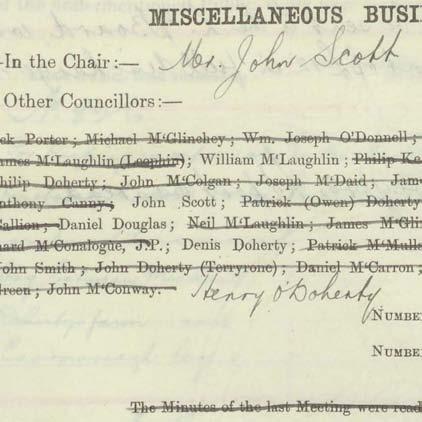 MISCELLANEOUS BUSI
-In the Chair:— Mr. John Scott
Other Councillors:—
ck Porter; Michael M'Glinchey; Wm. Joseph O'Donnell;
ames M'Laughlin (Leephin); William M'Laughlin; Philip Ke
Philip Doherty; John M'Colgan; Joseph M'Daid; Jam
nthony Canny; John Scott; Patrick (Owen) Doherty
Callion; Daniel Douglas; Neil M'Laughlin; James M'Gli
hard M'Conalogue, J.P.; Denis Doherty; Patrick M'Mull
John Smith; John Doherty (Terryrone); Daniel M'Carron;
Green; John M'Conway. Henry O'Doherty
NUMBE
NUMBE
The Minutes of the last Meeting were read